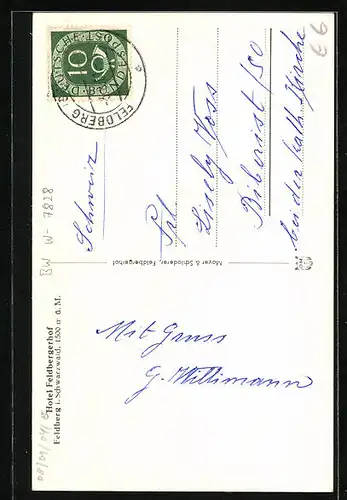 Hotel Feldbergerhof
Feldberg i. Schwarzwald, 1500 m ü. d. M.
Mit Gruss
G. Willimann
Mayer & Schloderer, Feldbergerhof
DEUTSCHE BUNDESPOST
10
FELDBERG
Frl
Lisely Voss
Biberist / SO
bei der kath. Kirche
Schweiz
BW W- 7828
€6